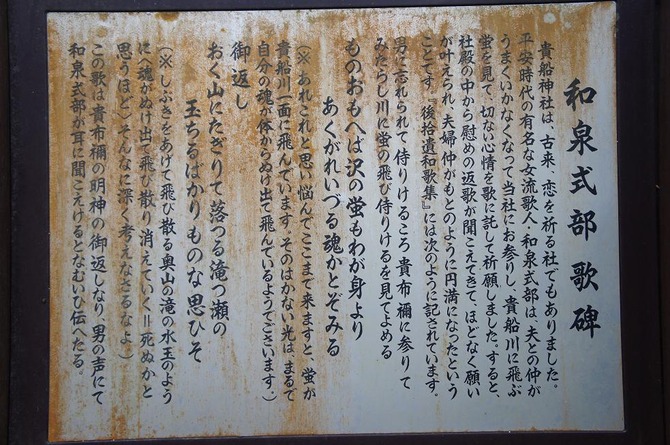 和泉式部歌碑
貴船神社は、古来、恋を祈る社でもありました。
平安時代の有名な女流歌人・和泉式部は、夫との仲が
うまくいかなくなって当社にお参りし、貴船川に飛ぶ
蛍を見て、切ない心情を歌に託して祈願しました。すると、
社殿の中から慰めの返歌が聞こえてきて、ほどなく願い
が叶えられ、夫婦仲がもとのように円満になったという
ことです。『後拾遺和歌集』には次のように記されています。
男に忘れられて侍りけるころ貴布禰に参りて
みたらし川に蛍の飛び侍りけるを見てよめる
ものおもへば沢の蛍もわが身より
あくがれいづる魂かとぞみる
(※あれこれと思い悩んでここまで来ますと、蛍が
貴船川一面に飛んでいます。そのはかない光は、まるで
自分の魂が体からぬけ出て飛んでいるようでございます。)
御返し
おく山にたぎりて落つる滝つ瀬の
玉ちるばかりものな思ひそ
(※しぶきをあげて飛び散る奥山の滝の水玉のよう
に〈魂がぬけ出て飛び散り消えていく=死ぬかと
思うほど〉そんなに深く考えなさるなよ。)
この歌は貴布禰の明神の御返しなり、男の声にて
和泉式部が耳に聞こえけるとなむいひ伝へたる